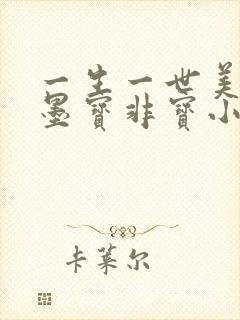 一生一世美
墨宝非宝小
卡莱尔